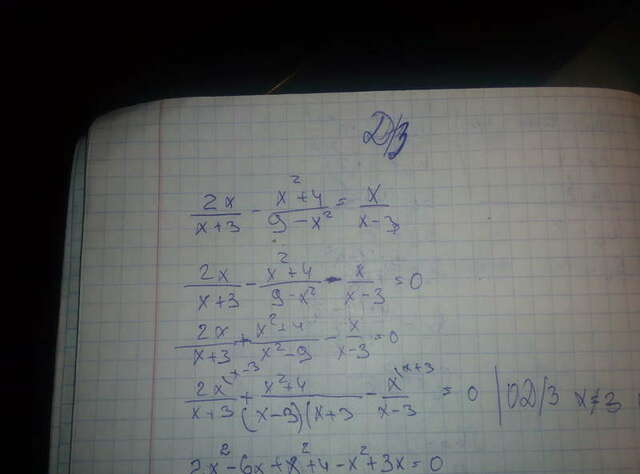 Д/з
2x/(x+3) - (x²+4)/(9-x²) = x/(x-3)
2x/(x+3) - (x²+4)/(9-x²) - x/(x-3) = 0
2x/(x+3) + (x²+4)/(x²-9) - x/(x-3) = 0
2x^{\x-3}/(x+3) + (x²+4)/((x-3)(x+3) - x^{\x+3}/(x-3) = 0 | ОДЗ x≠3
2x²-6x+x²+4-x²+3x=0